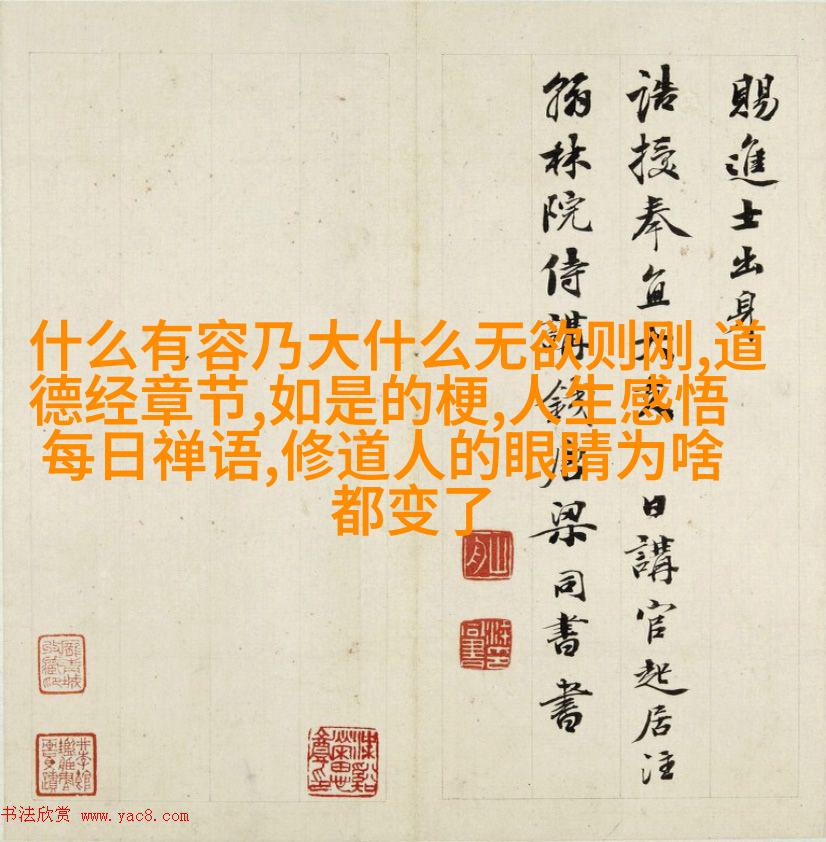 什么有容乃大什么无欲则刚,道
德经章节,如是的梗,人生感悟
每日禅语,修道人的眼睛为啥
都变了
賜進士出身
誥授奉直大夫 日講官起居注
翰林院侍講錢唐梁同書書
书法欣赏 www.yac8.com